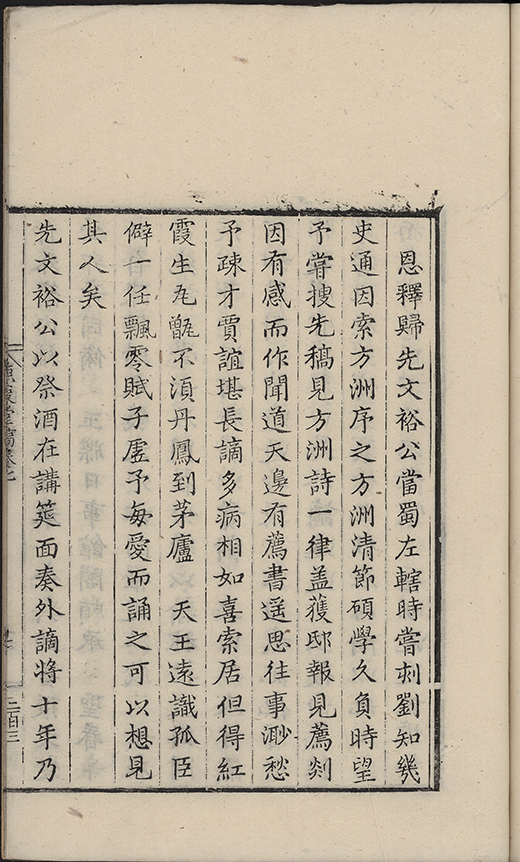 恩釋歸先文裕公當蜀左轄時嘗刻劉知幾
史通因索方洲序之方洲清節碩學久負時望
予嘗搜先稿見方洲詩一律盖獲邸報見薦剡
因有感而作聞道天邊有薦書遥思往事渺愁
予疎才賈誼堪長謫多病相如喜索居但得紅
霞生瓦甑不湏丹鳳到茅廬 天王遠識孤臣
僻一任飄零賦子虛予每愛而誦之可以想見
其人矣
先文裕公以祭酒在講筵面奏外謫將十年乃
二百三